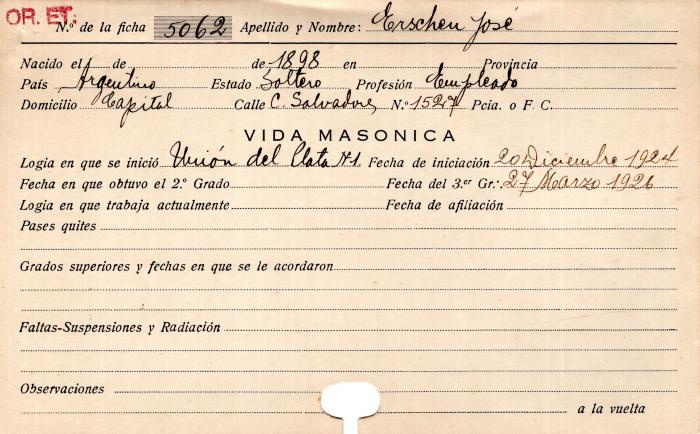 OR. ET.
N.º de la ficha 5062 Apellido y Nombre: Erschen José
Nacido el de de 1898 en Provincia
País Argentino Estado Soltero Profesión Empleado
Domicilio Capital Calle C. Salvadores N.º 1527 Pcia. o F. C.
VIDA MASONICA
Logia en que se inició Unión del Plata Nº1. Fecha de iniciación 20 Diciembre 1924
Fecha en que obtuvo el 2.º Grado Fecha del 3.er Gr.·. 27 Marzo 1926
Logia en que trabaja actualmente Fecha de afiliación
Pases quites
Grados superiores y fechas en que se le acordaron
Faltas-Suspensiones y Radiación
Observaciones
a la vuelta